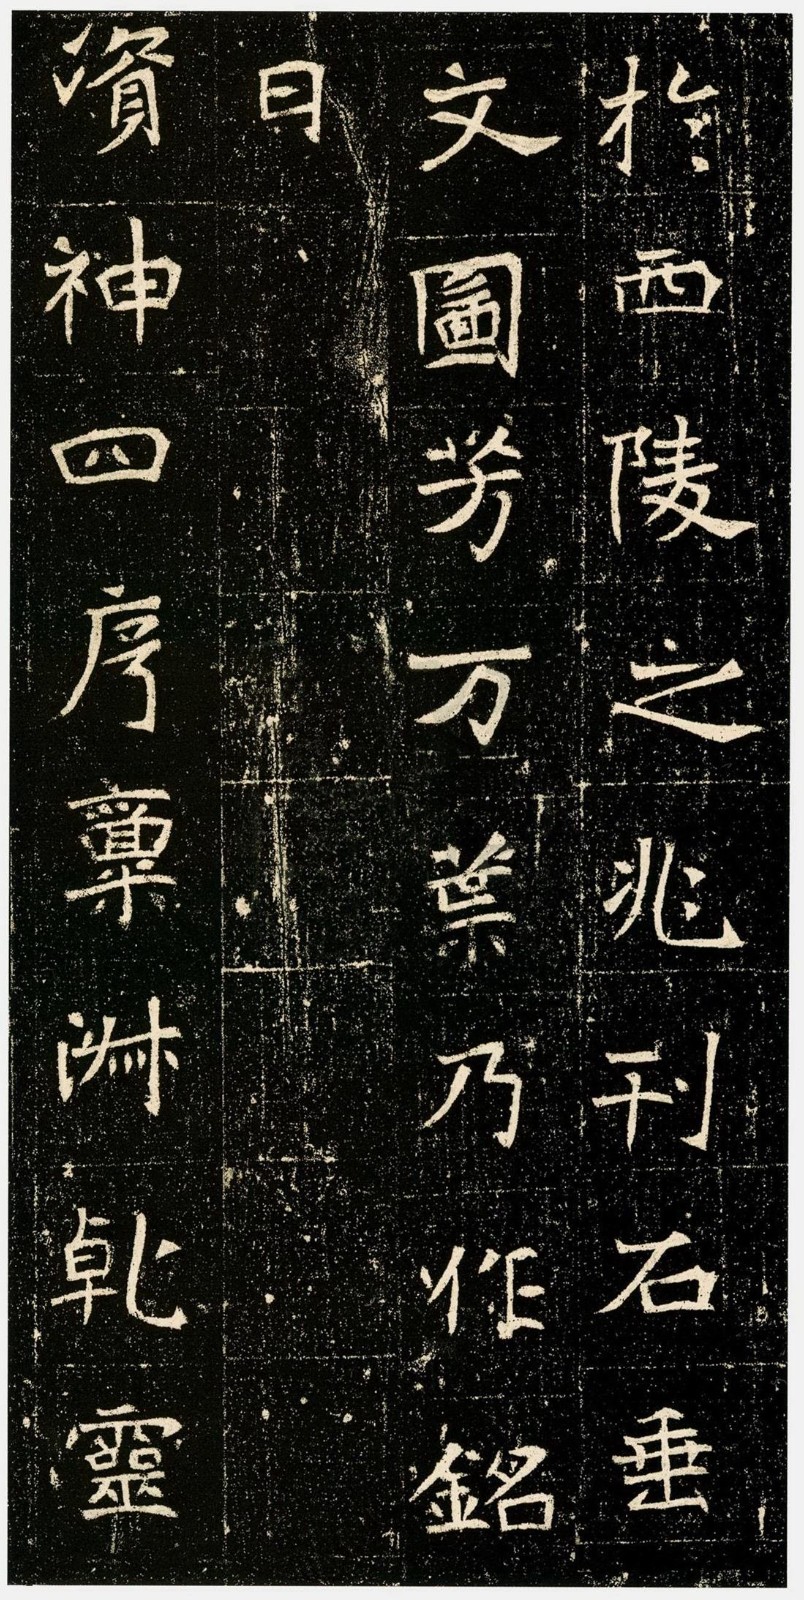 於西陵之兆刊石垂
文圖芳万葉乃作銘
曰
資神四序稟淋乹靈